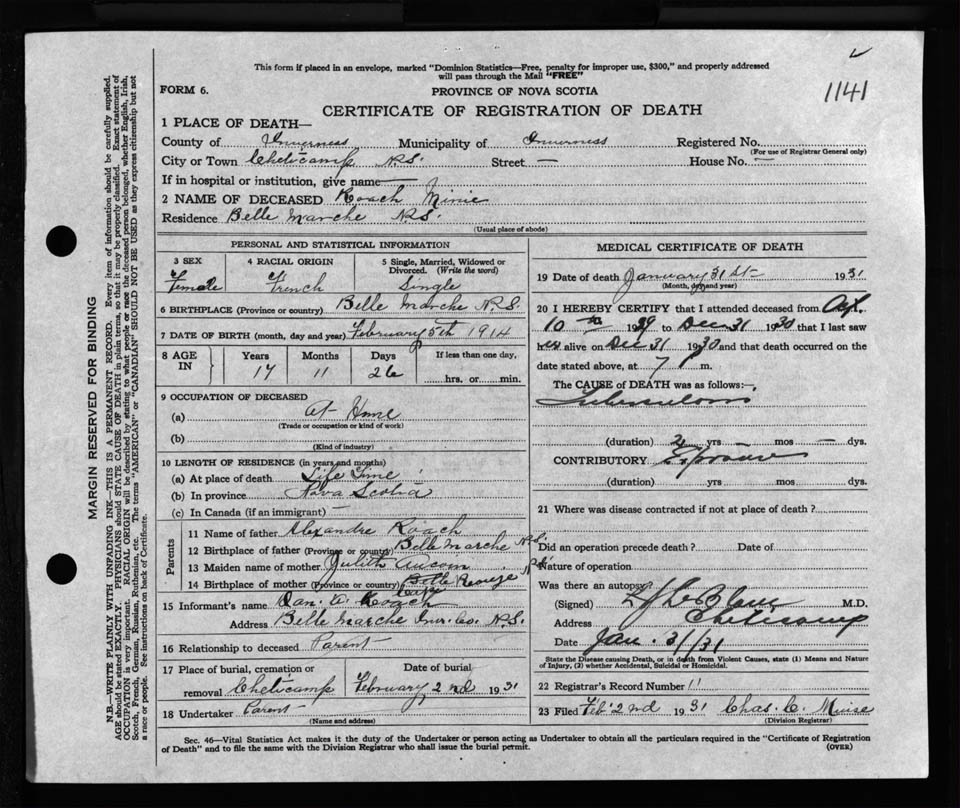 This form if placed in an envelope, marked "Dominion Statistics—Free, penalty for improper use, $300," and properly addressed
will pass through the Mail "FREE"
FORM 6.
PROVINCE OF NOVA SCOTIA
1141
CERTIFICATE OF REGISTRATION OF DEATH
1 PLACE OF DEATH—
County of Inverness Municipality of Inverness Registered No.
(For use of Registrar General only)
City or Town Cheticamp N.S. Street — House No. —
If in hospital or institution, give name —
2 NAME OF DECEASED Roach Minie
Residence Belle Marche N.S.
(Usual place of abode)
PERSONAL AND STATISTICAL INFORMATION
3 SEX 4 RACIAL ORIGIN 5 Single, Married, Widowed or
Divorced. (Write the word)
Female French Single
6 BIRTHPLACE (Province or country) Belle Marche N.S.
7 DATE OF BIRTH (month, day and year) February 5th 1914
8 AGE IN Years Months Days If less than one day,
17 11 26 hrs. or min.
9 OCCUPATION OF DECEASED
(a) At Home
(Trade or occupation or kind of work)
(b)
(Kind of industry)
10 LENGTH OF RESIDENCE (in years and months)
(a) At place of death Life Time
(b) In province Nova Scotia
(c) In Canada (if an immigrant) —
Parents
11 Name of father Alexandre Roach
12 Birthplace of father (Province or country) Belle Marche N.S.
13 Maiden name of mother Judith Aucoin
14 Birthplace of mother (Province or country) Rouge N.S.
15 Informant's name Dan. A. Roach
Address Belle Marche Inv. Co. N.S.
16 Relationship to deceased Parent
17 Place of burial, cremation or Date of burial
removal Cheticamp February 2nd 1931
18 Undertaker Parent
(Name and address)
MEDICAL CERTIFICATE OF DEATH
19 Date of death January 31st 1931
(Month, day and year)
20 I HEREBY CERTIFY that I attended deceased from
10th 1929 to Dec 31 1930 that I last saw
her alive on Dec 31 1930 and that death occurred on the
date stated above, at 7 P m.
The CAUSE of DEATH was as follows:—
Tuberculosis
(duration) 2 yrs — mos — dys.
CONTRIBUTORY Exposure
(duration) yrs mos dys.
21 Where was disease contracted if not at place of death?
Did an operation precede death? Date of
Nature of operation
Was there an autopsy
(Signed) LeBlanc M.D.
Address Cheticamp
Date Jan. 31/31
State the Disease causing Death, or in death from Violent Causes, state (1) Means and Nature
of Injury, (2) whether Accidental, Suicidal or Homicidal.
22 Registrar's Record Number 11
23 Filed Feb 2nd 1931 Chas. C. Muise
(Division Registrar)
Sec. 46—Vital Statistics Act makes it the duty of the Undertaker or person acting as Undertaker to obtain all the particulars required in the "Certificate of Registration
of Death" and to file the same with the Division Registrar who shall issue the burial permit.
(OVER)
MARGIN RESERVED FOR BINDING
N.B.—WRITE PLAINLY WITH UNFADING INK—THIS IS A PERMANENT RECORD. Every item of information should be carefully supplied.
AGE should be stated EXACTLY. PHYSICIANS should STATE CAUSE OF DEATH in plain terms, so that it may be properly classified. Exact statement of
OCCUPATION is very important. RACIAL ORIGIN will be described by stating to what people or race the deceased person belonged, whether English, Irish,
Scotch, French, German, Russian, Ruthenian, etc. The terms "AMERICAN" or "CANADIAN" SHOULD NOT BE USED as they express citizenship but not
a race or people. See instructions on back of Certificate.